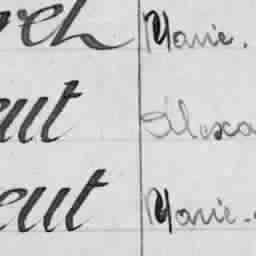 reh Marie.
eut Alexa
eut Marie.